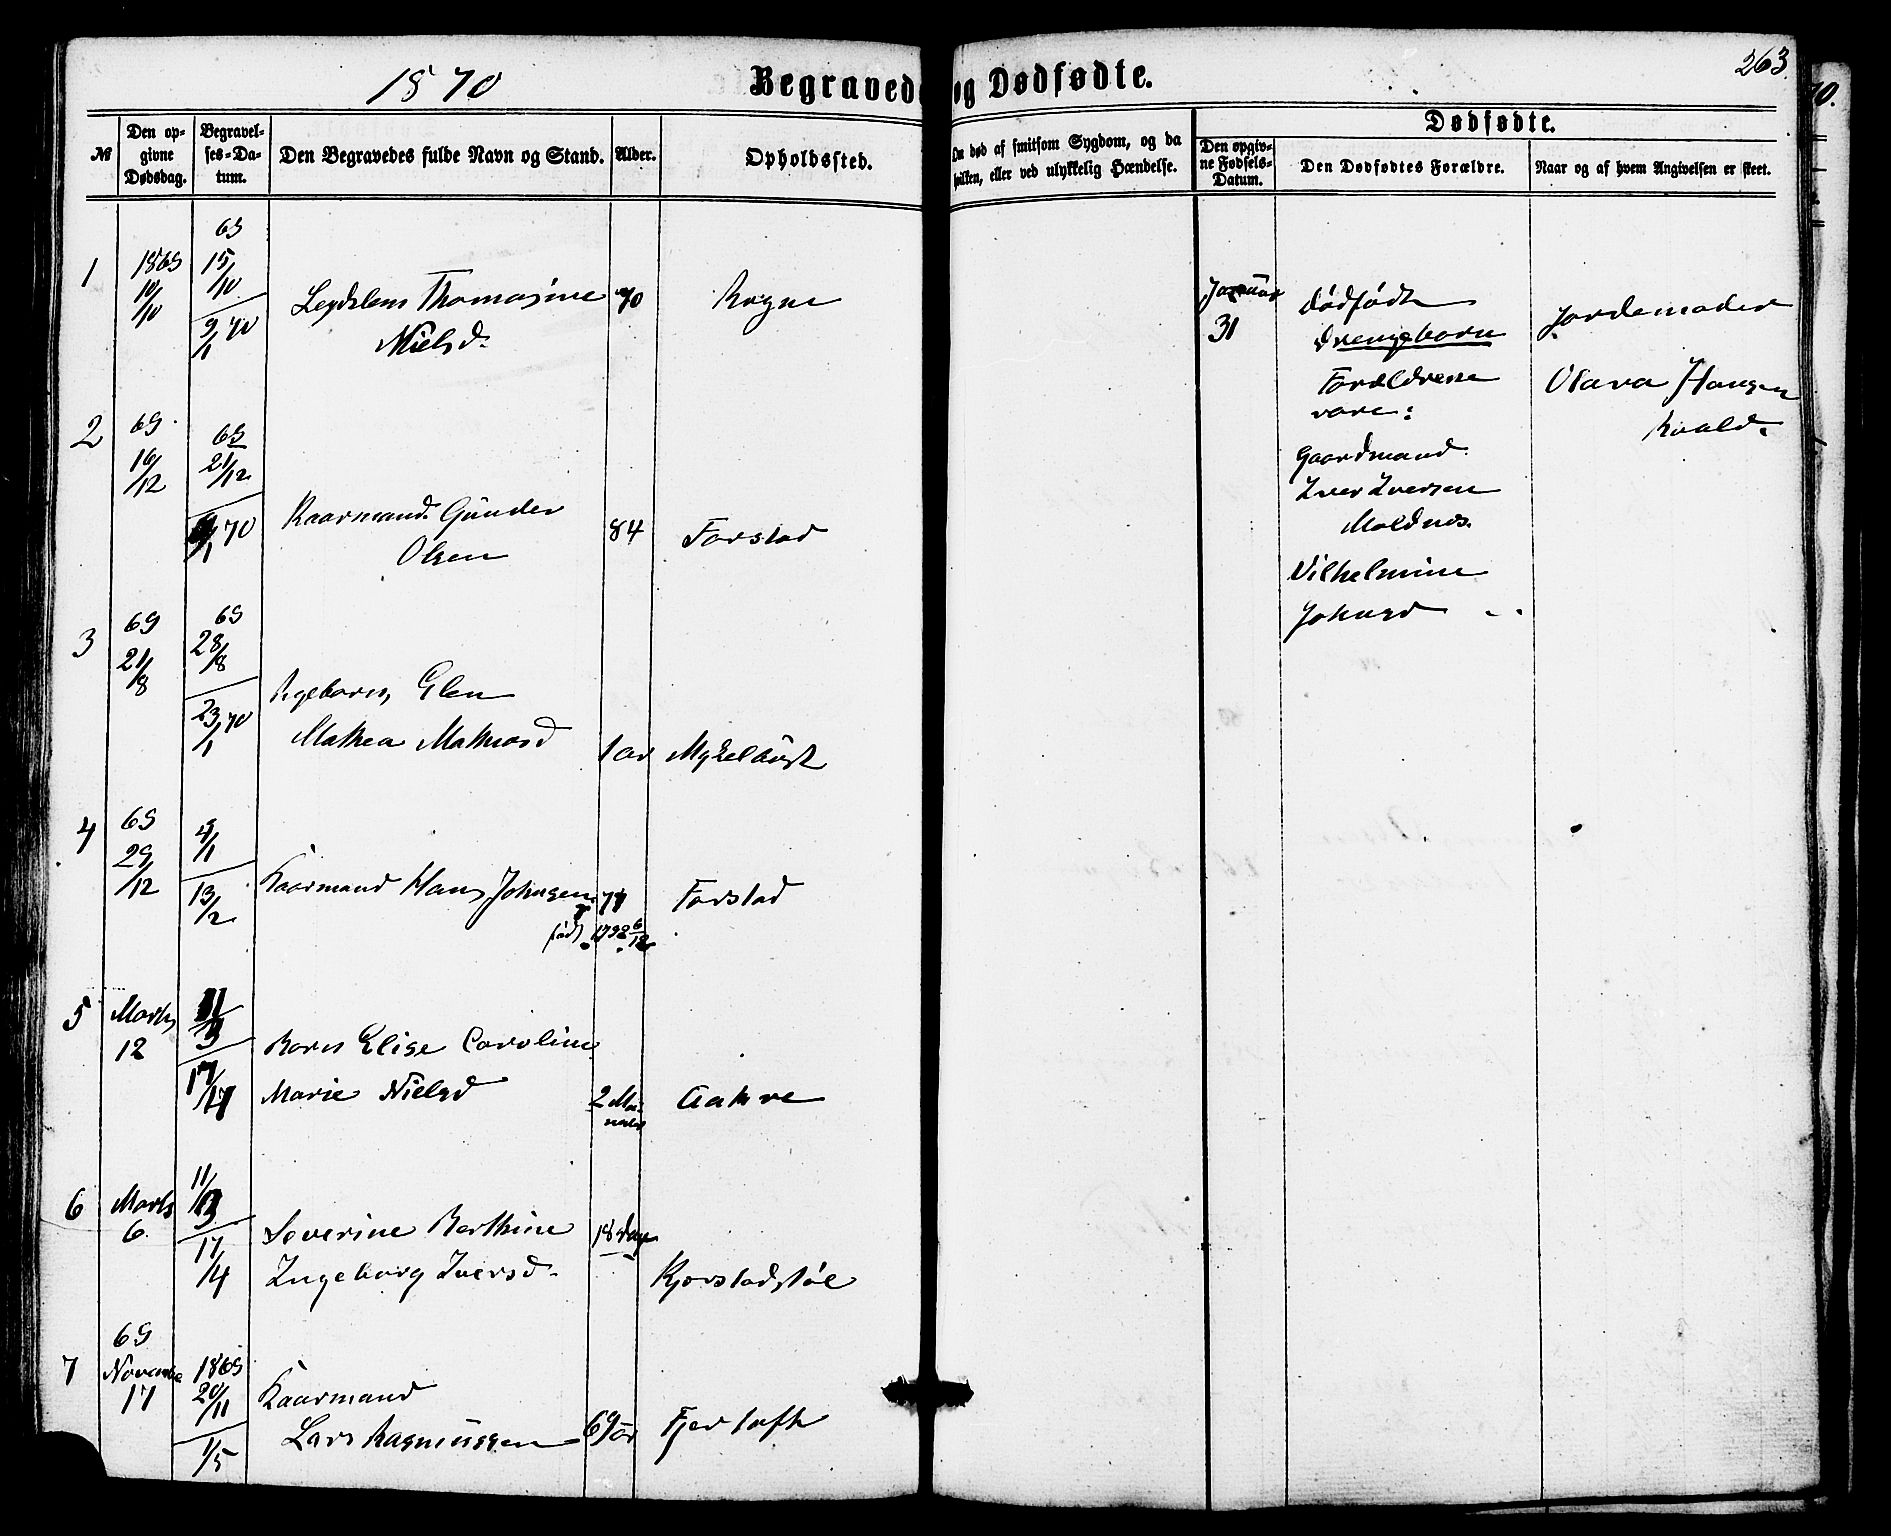 1870
Begravede og Dødfødte.
263.
No
Den op-
givne
Dødsdag.
Begravel-
ses-Da-
tum.
Den Begravedes fulde Navn og Stand.
Alder.
Opholdssted.
Om død af smitsom Sygdom, og da
hvilken, eller ved ulykkelig Hændelse.
Dødfødte.
Den opgiv-
ne Fødsels-
Datum.
Den Dødfødtes Forældre.
Naar og af hvem Angivelsen er skeet.
1
1869
10/10
69
15/10
9/1 70
Thomasine
Nielsd.
70
Rogne
2
69
16/12
69
21/12
9/1 70
Kaarmand Gunder
Olsen
84
Farstad
3
69
21/8
69
28/8
23/1 70
Elen
Mathea Mathiasd
1 aar
Myklebust
4
69
29/12
4/1
13/2
Kaarmand Hans Johnsen
77
født 1792 6/12
Farstad
5
Marts
12
17/4
Barn Elise Caroline
Marie Nielsd
2 Maa-
neder
Aakre
6
Marts
6
11/3
17/4
Severine Berthine
Ingeborg Iversd.
18 Dage
Kjerstadstøl
7
69
November
17
1869
20/11
1/5
Kaarmand
Lars Rasmussen
69 aar
Fjertoft
Januar
31
Dødfødt
Drengebarn
Forældrene
vare:
Gaardmand
Iver Iversen
Moldnes.
Vilhelmine
Johnsd
Jordemoder
Olava Hansen
Roald.